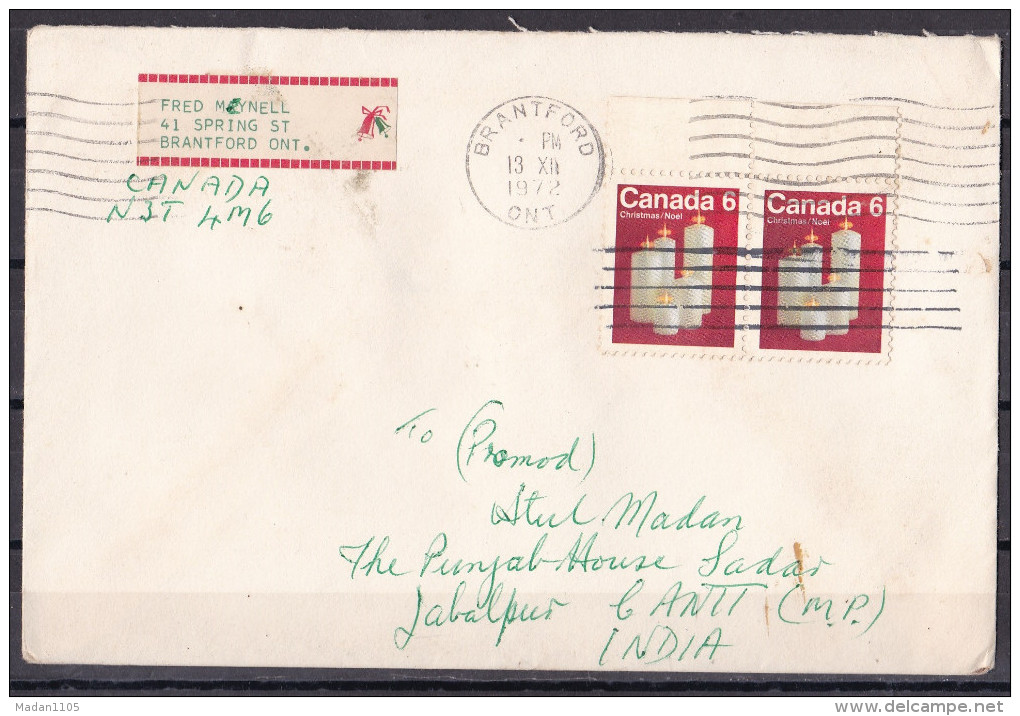 FRED MEYNELL
41 SPRING ST
BRANTFORD ONT.
CANADA
N3T 4M6
BRANTFORD
PM
13 XII
1972
ONT
Canada 6
Christmas/Noël
Canada 6
Christmas/Noël
To (Promod)
Atul Madan
The Punjab House Sadar
Jabalpur CANTT (M.P.)
INDIA
Madan1105
www.delcampe.net